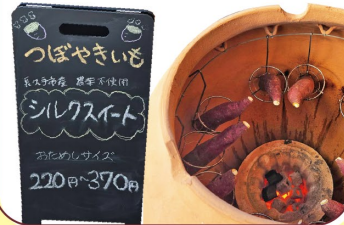 つぼやきいも
長久手市産 農薬不使用
シルクスイート
おためしサイズ
220円～370円